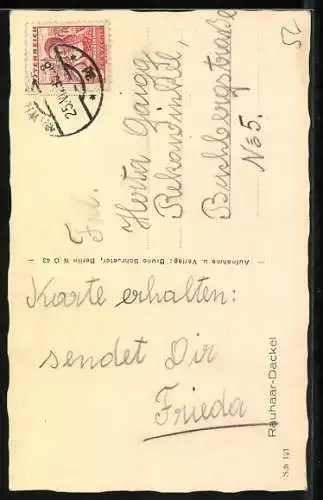 52
ÖSTERREICH
25.VI.
Frl.
Herta Gaigg
Rekawinkel,
Buchbergstraße
No 5.
— Aufnahme u. Verlag: Bruno Schroeter, Berlin N O 43 —
Karte erhalten:
sendet Dir
Frieda
Rauhaar-Dackel
Sch 191